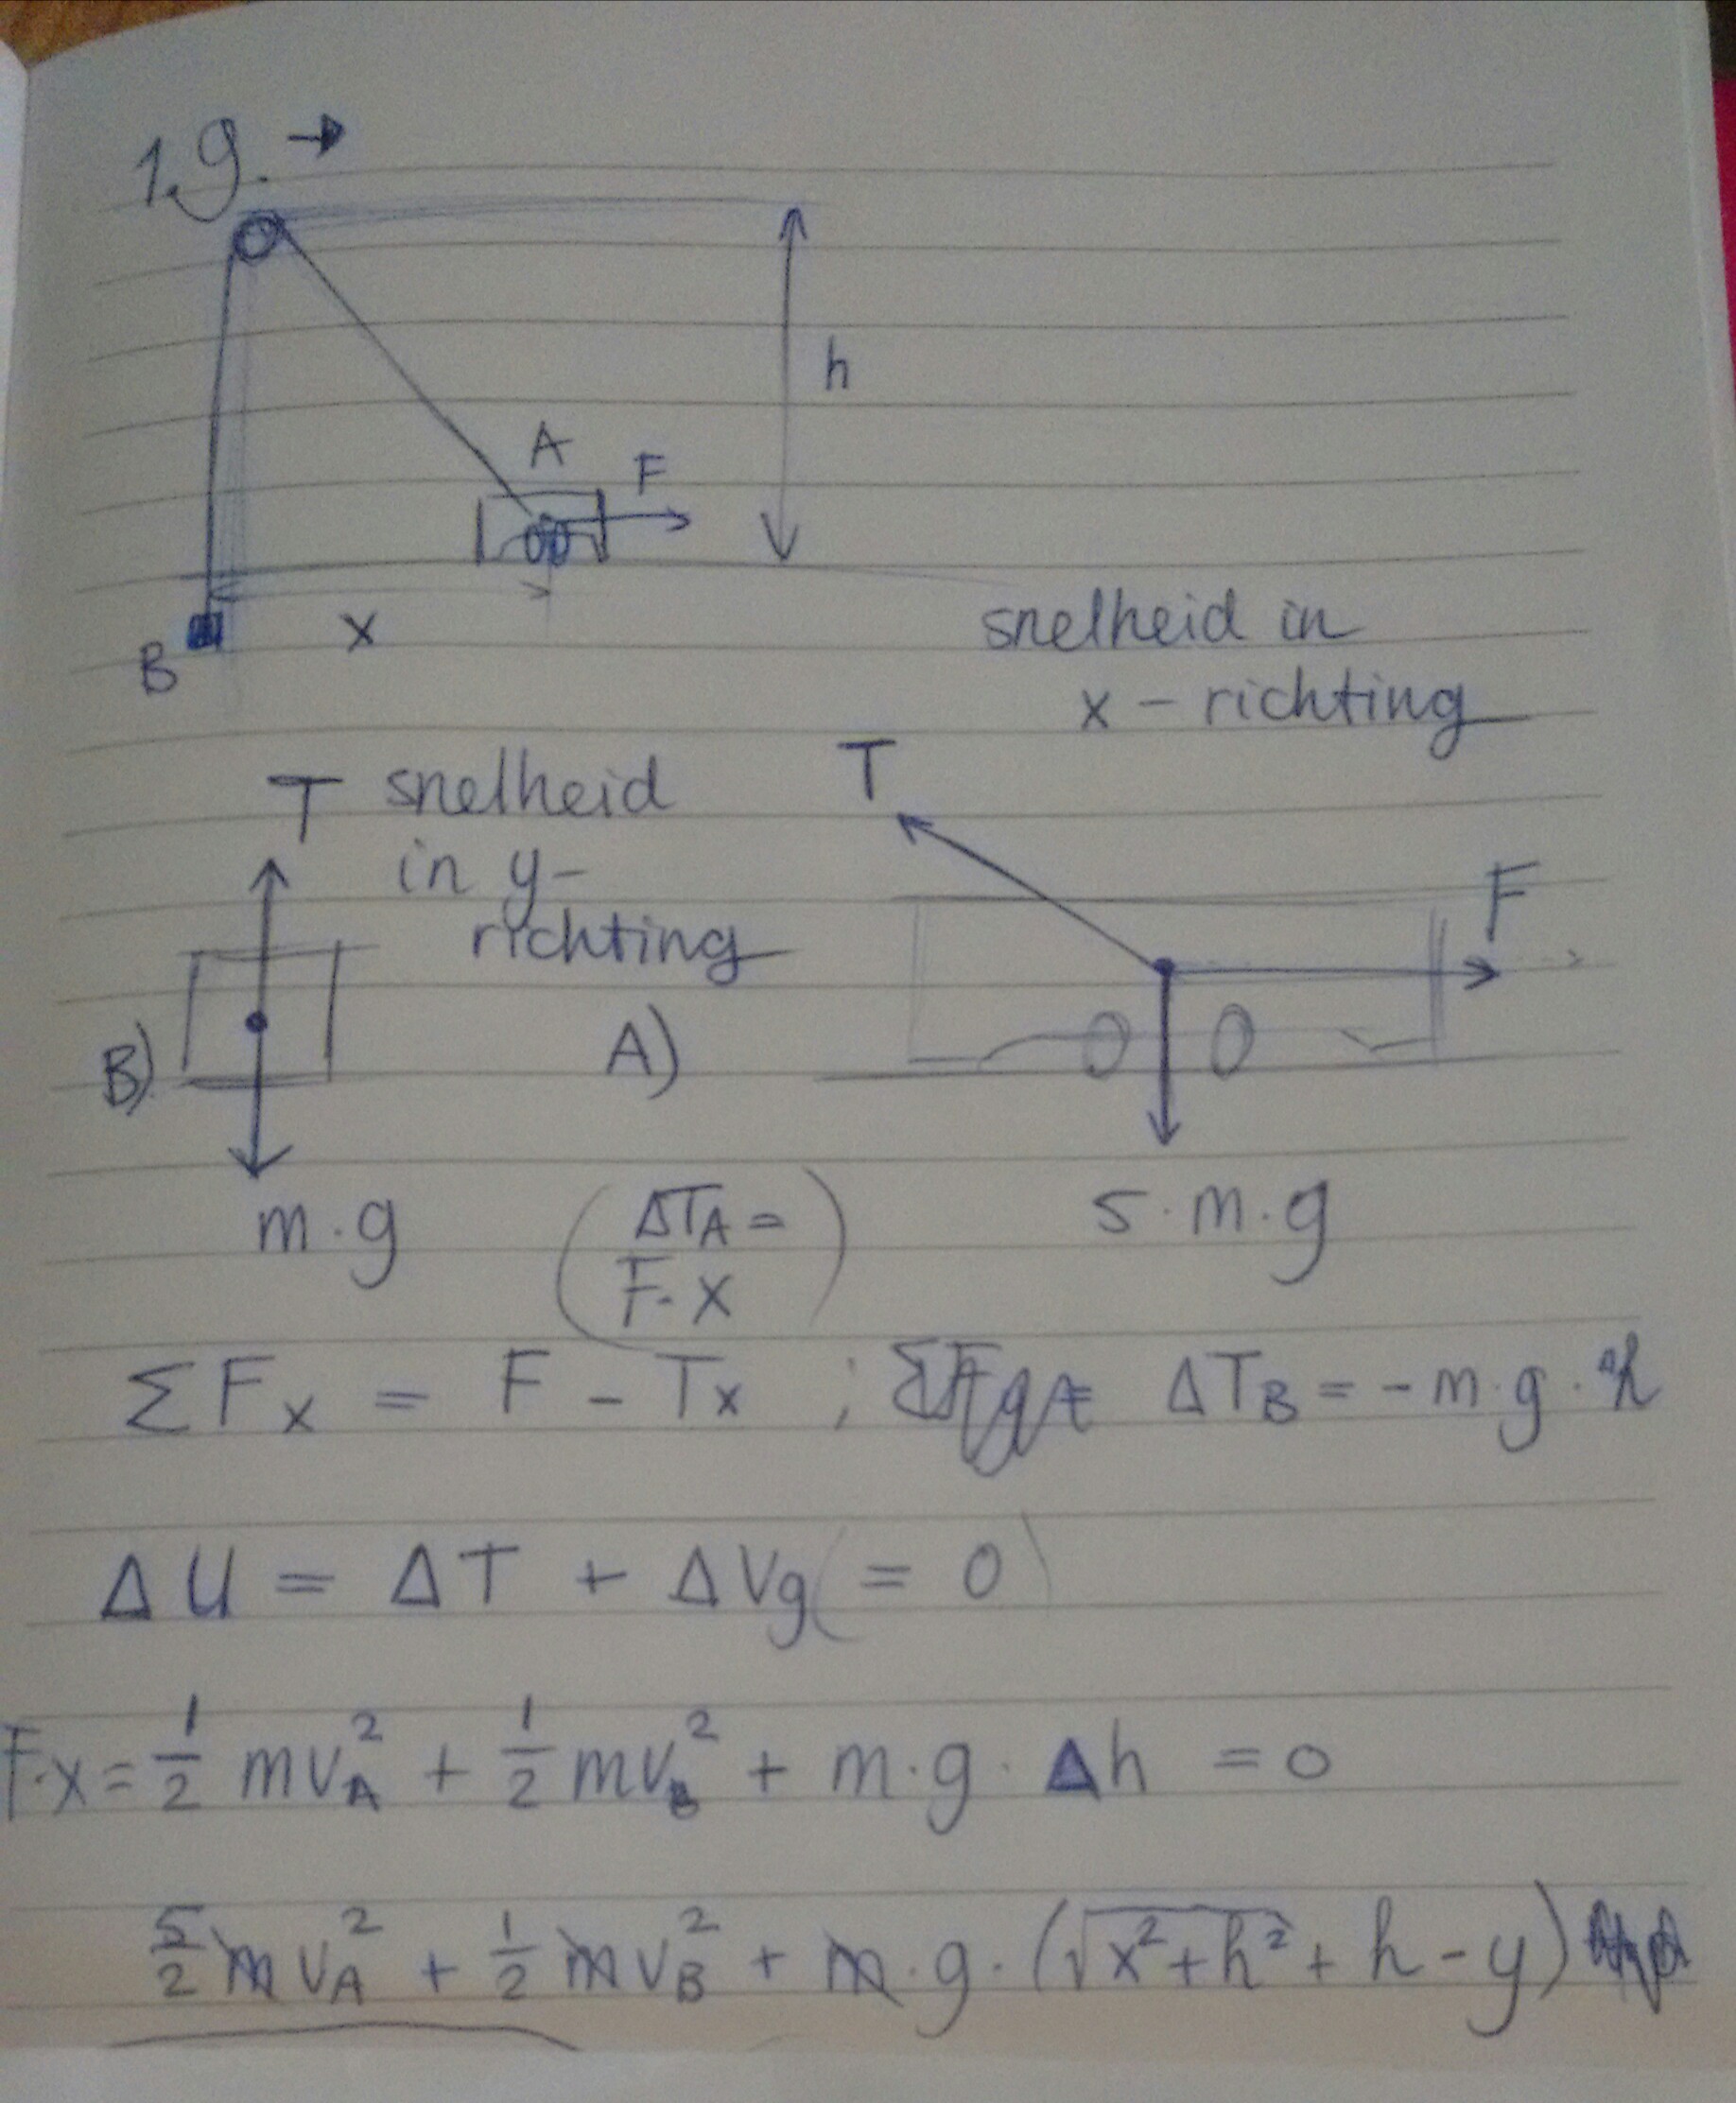 1.9. →
h
A
F
B
x
snelheid in
x - richting
T snelheid
in y-
richting
T
F
B)
A)
m·g
(ΔT_A =
F·x)
5·m·g
ΣF_x = F - T_x ; ΔT_B = - m·g·
ΔU = ΔT + ΔVg (= 0)
F·x = 1/2 mv_A^2 + 1/2 mv_B^2 + m·g·Δh = 0
5/2 mv_A^2 + 1/2 mv_B^2 + m·g·(√x^2+h^2 + h - y)